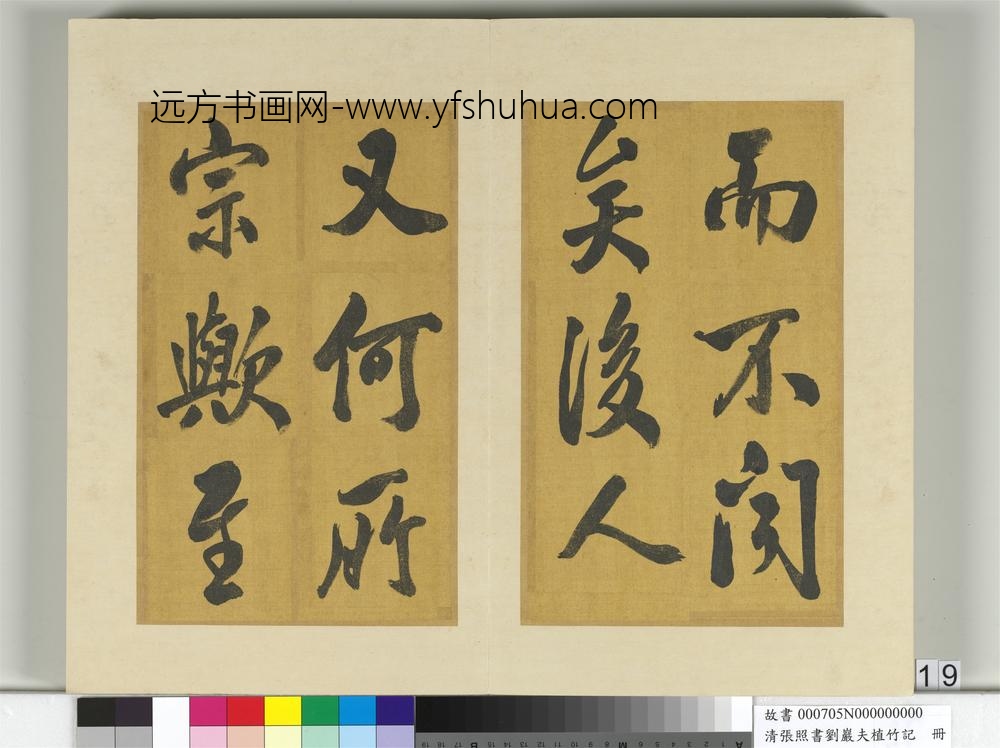 远方书画网-www.yfshuhua.com
而不聞
矣後人
又何所
宗歟至
19
故書 000705N000000000
清張照書劉巖夫植竹記 冊